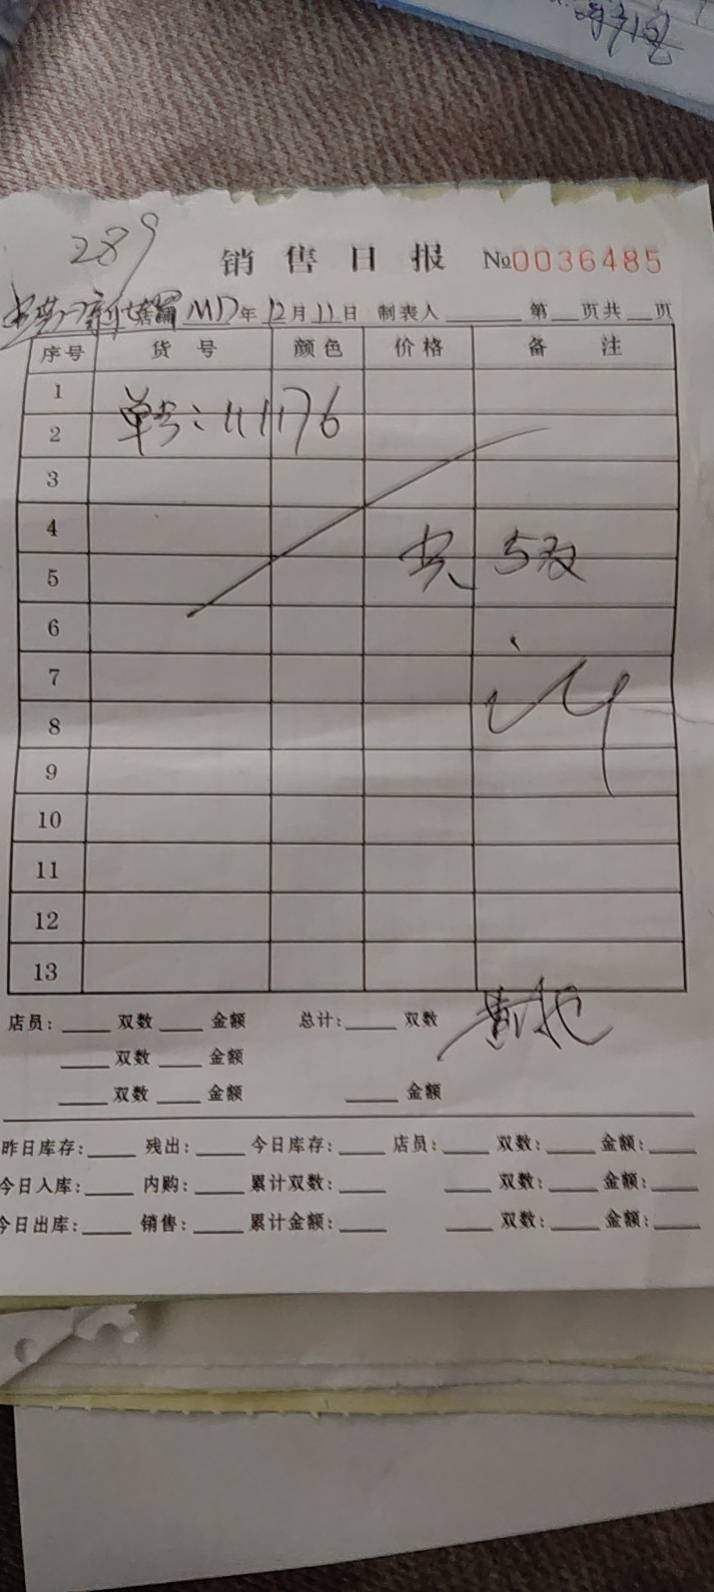 289
销售日报 №0036485
年 12月11日 制表人 第 页共 页
序号 货号 颜色 价格 备注
1
单号:111176
2
3
4
共 5双
5
6
7
8
9
10
11
12
13
店员: 双数 金额 总计: 双数
双数 金额
双数 金额 金额
昨日库存: 残出: 今日库存: 店员: 双数: 金额:
今日入库: 内购: 累计双数: 双数: 金额:
今日出库: 销售: 累计金额: 双数: 金额: